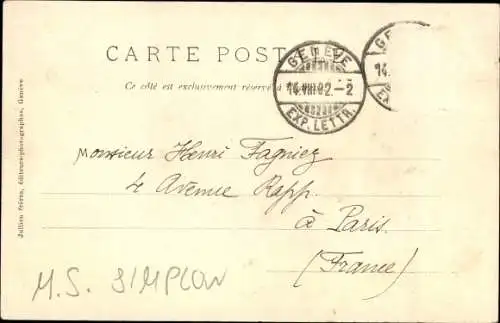 CARTE POST
Ce côté est exclusivement réservé à
GENÈVE
14.VIII.02.-2
EXP. LETTR.
GE
14.
EX
Monsieur Henri Fagniez
4 Avenue Rapp.
à Paris.
(France)
M.S. SIMPLON
Jullien frères, éditeurs-photographes, Genève